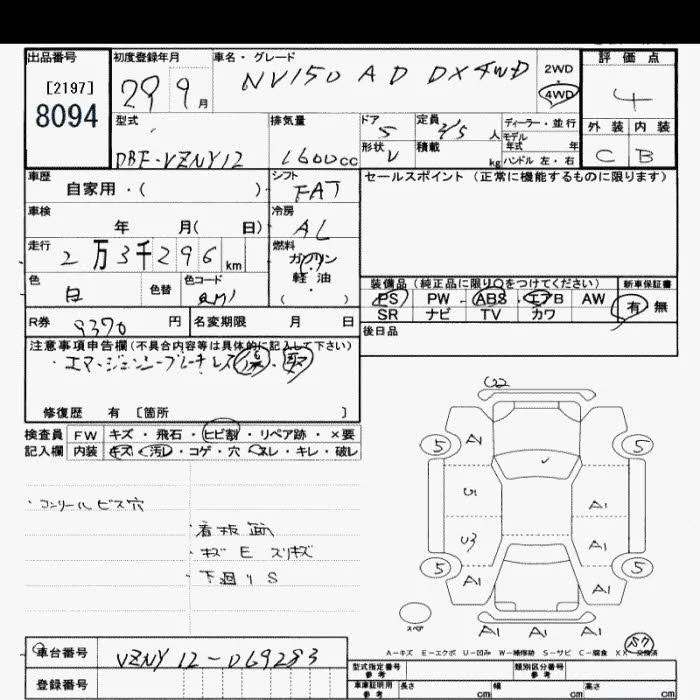 出品番号 初度登録年月 車名・グレード 評価点
[2197] 29 9月 NV150 AD DX4WD 2WD・4WD 4
8094
型式 排気量 ドア 定員 人 ディーラー・並行 外装 内装
5 2/5 モデル年式 年
DBF-VZNY12 1600cc 形状 V 積載 kg ハンドル 左・右 C B
車歴 シフト セールスポイント(正常に機能するものに限ります)
自家用・( ) FAT
車検 冷房
年 月( 日) AC
走行 燃料
2万3千296km ガソリン
色 色替 色コード 軽油 装備品(純正品に限り○をつけてください) 新車保証書
白 ( ) PS PW・ABS・エアB AW 有 無
R券 9370円 名変期限 月 日 SR ナビ TV カワ
後日品
注意事項申告欄(不具合内容等は具体的に記入して下さい)
・エマージェンシーブレーキレス
修復歴 有 [箇所 ]
検査員 FW キズ・飛石・ヒビ割・リペア跡・×要
記入欄 内装 キズ・汚レ・コゲ・穴・スレ・キレ・破レ
U2
5 A1 5
U1 A1
・コンソールビス穴
・看板跡
・キズ E スリキズ
・下廻り S
U3 A1
5 5
A1 A1
スペア A1 A1 A1
A-キズ E-エクボ U-凹み W-補修跡 S-サビ C-腐食 XX-交換済
車台番号 VZNY12-069283
登録番号
型式指定番号 参考 類別区分番号 参考
車庫証明用 参考 長さ cm 幅 cm 高さ cm